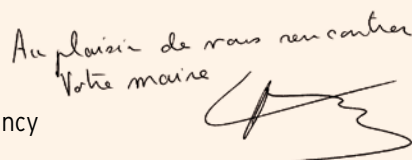 Au plaisir de vous rencontrer
Votre maire
ncy